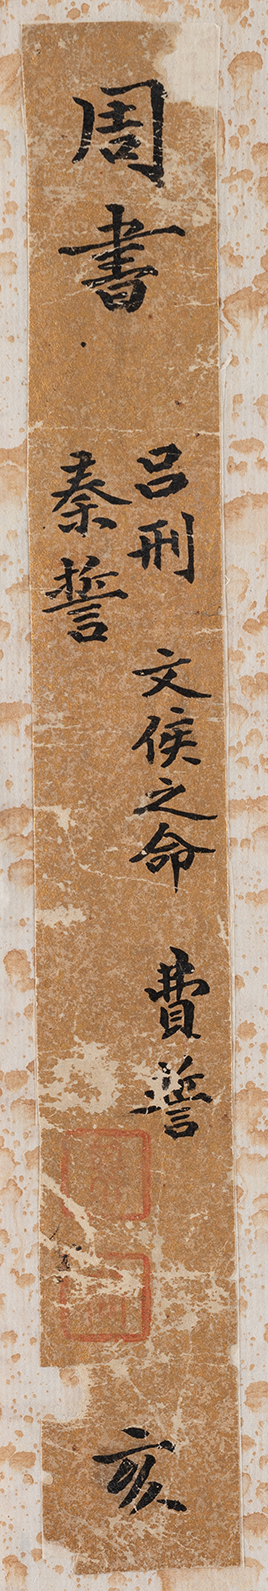 周書
呂刑 文侯之命 費誓
秦誓
亥